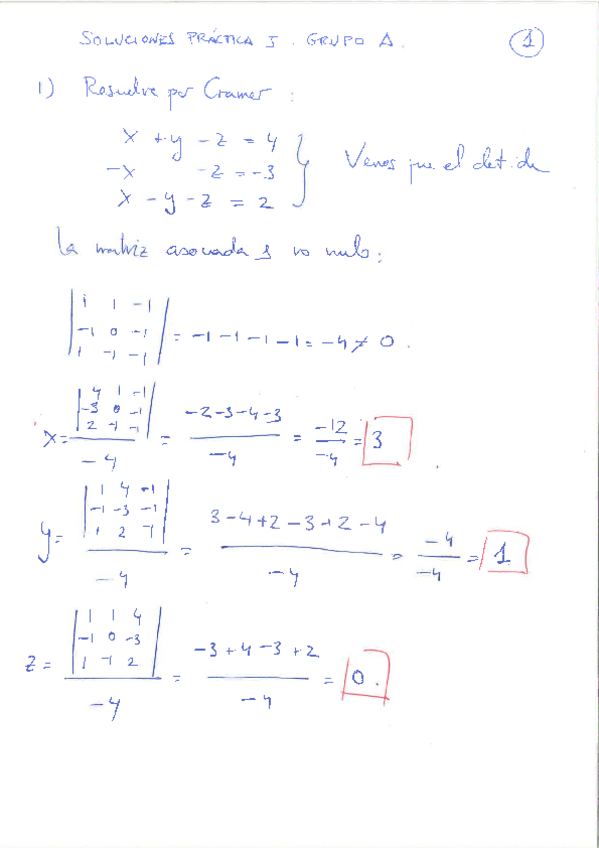 SOLUCIONES PRÁCTICA I. GRUPO A. 1
1) Resuelve por Cramer:
x + y - z = 4
-x - z = -3
x - y - z = 2
} Vemos que el det. de
la matriz asociada es no nulo:
| 1 1 -1 |
| -1 0 -1 | = -1 -1 -1 -1 = -4 ≠ 0.
| 1 -1 -1 |
| 4 1 -1 |
| -3 0 -1 |
| 2 -1 -1 |
x = / -4 = -2-3-4-3 / -4 = -12 / -4 = 3
| 1 4 -1 |
| -1 -3 -1 |
| 1 2 -1 |
y = / -4 = 3-4+2-3+2-4 / -4 = -4 / -4 = 1
| 1 1 4 |
| -1 0 -3 |
| 1 -1 2 |
z = / -4 = -3+4-3+2 / -4 = 0.